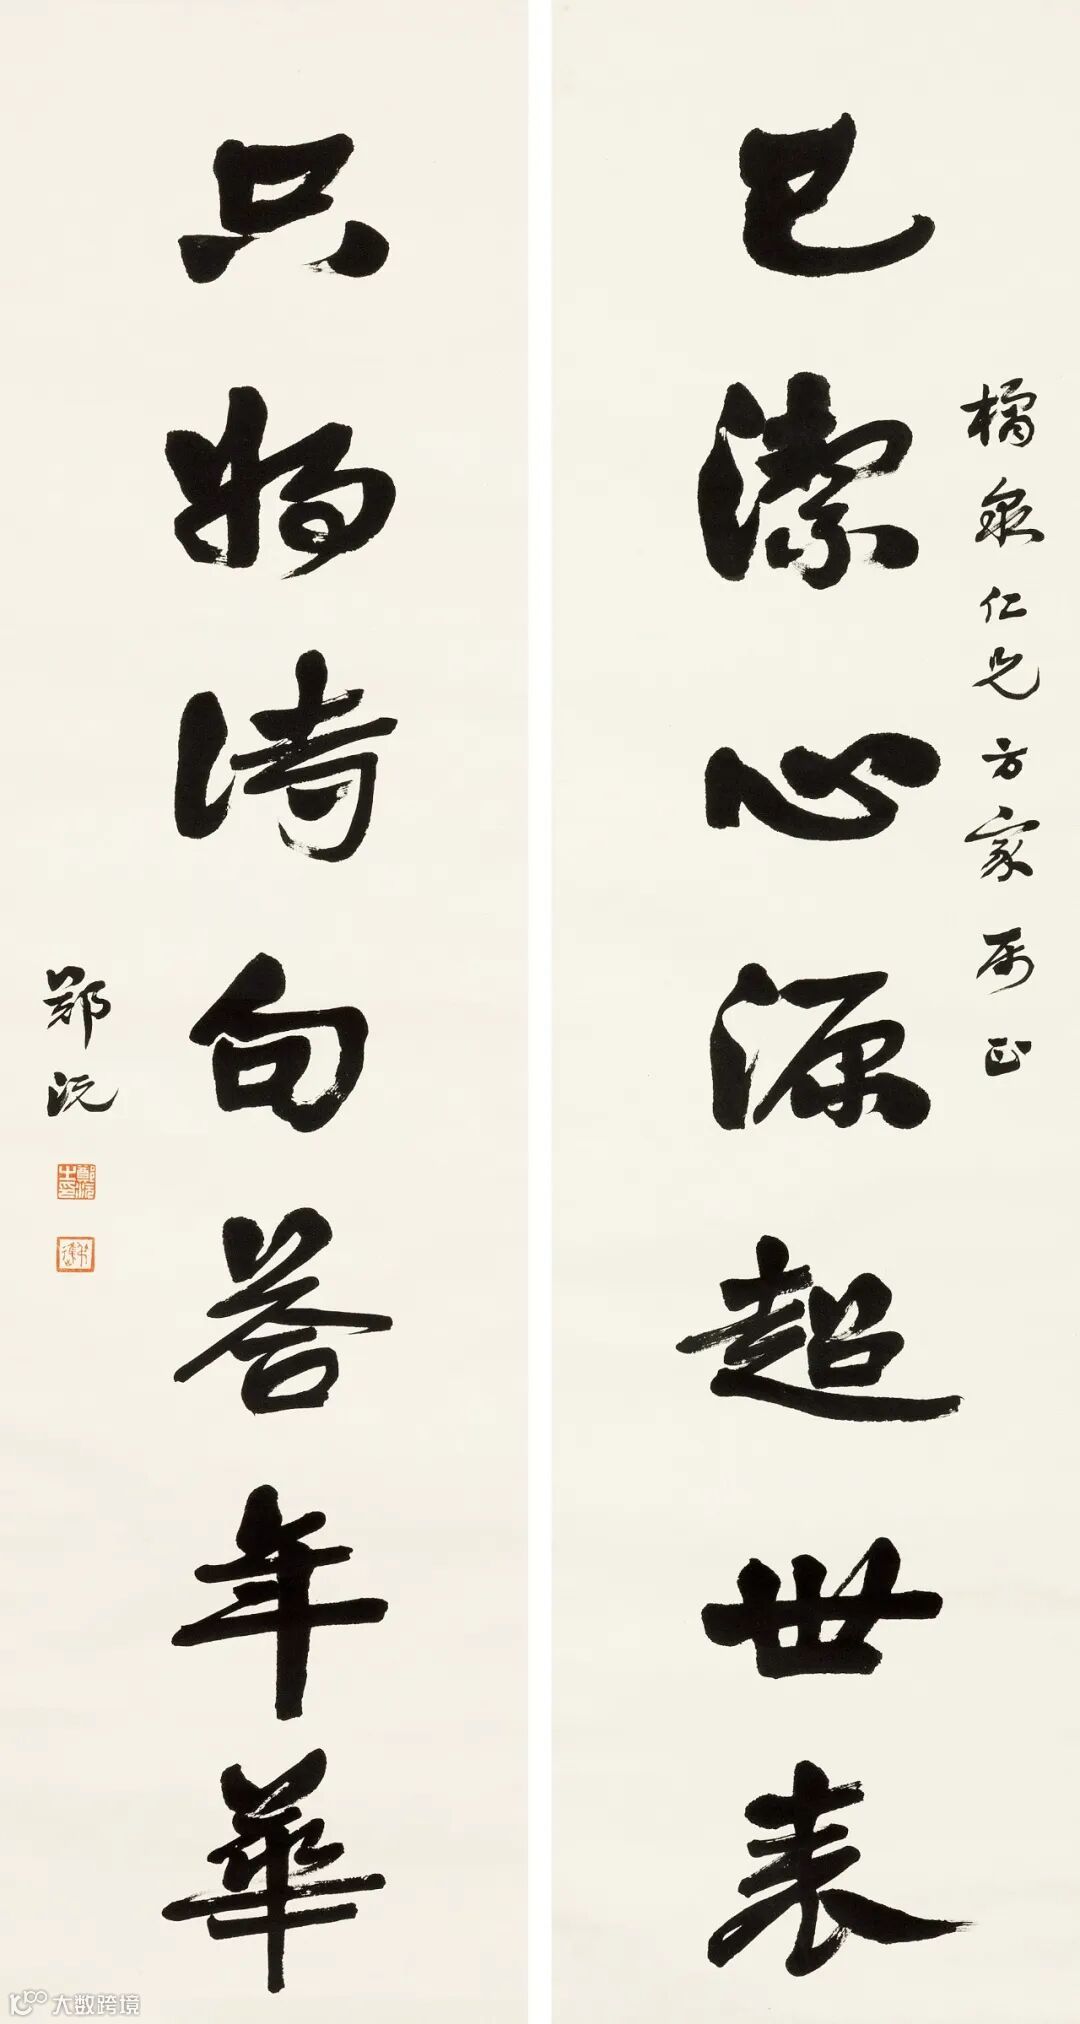 橘泉仁兄方家属正
已潔心源超世表
只將詩句答年華
鄭沅
鄭沅之印
大数跨境